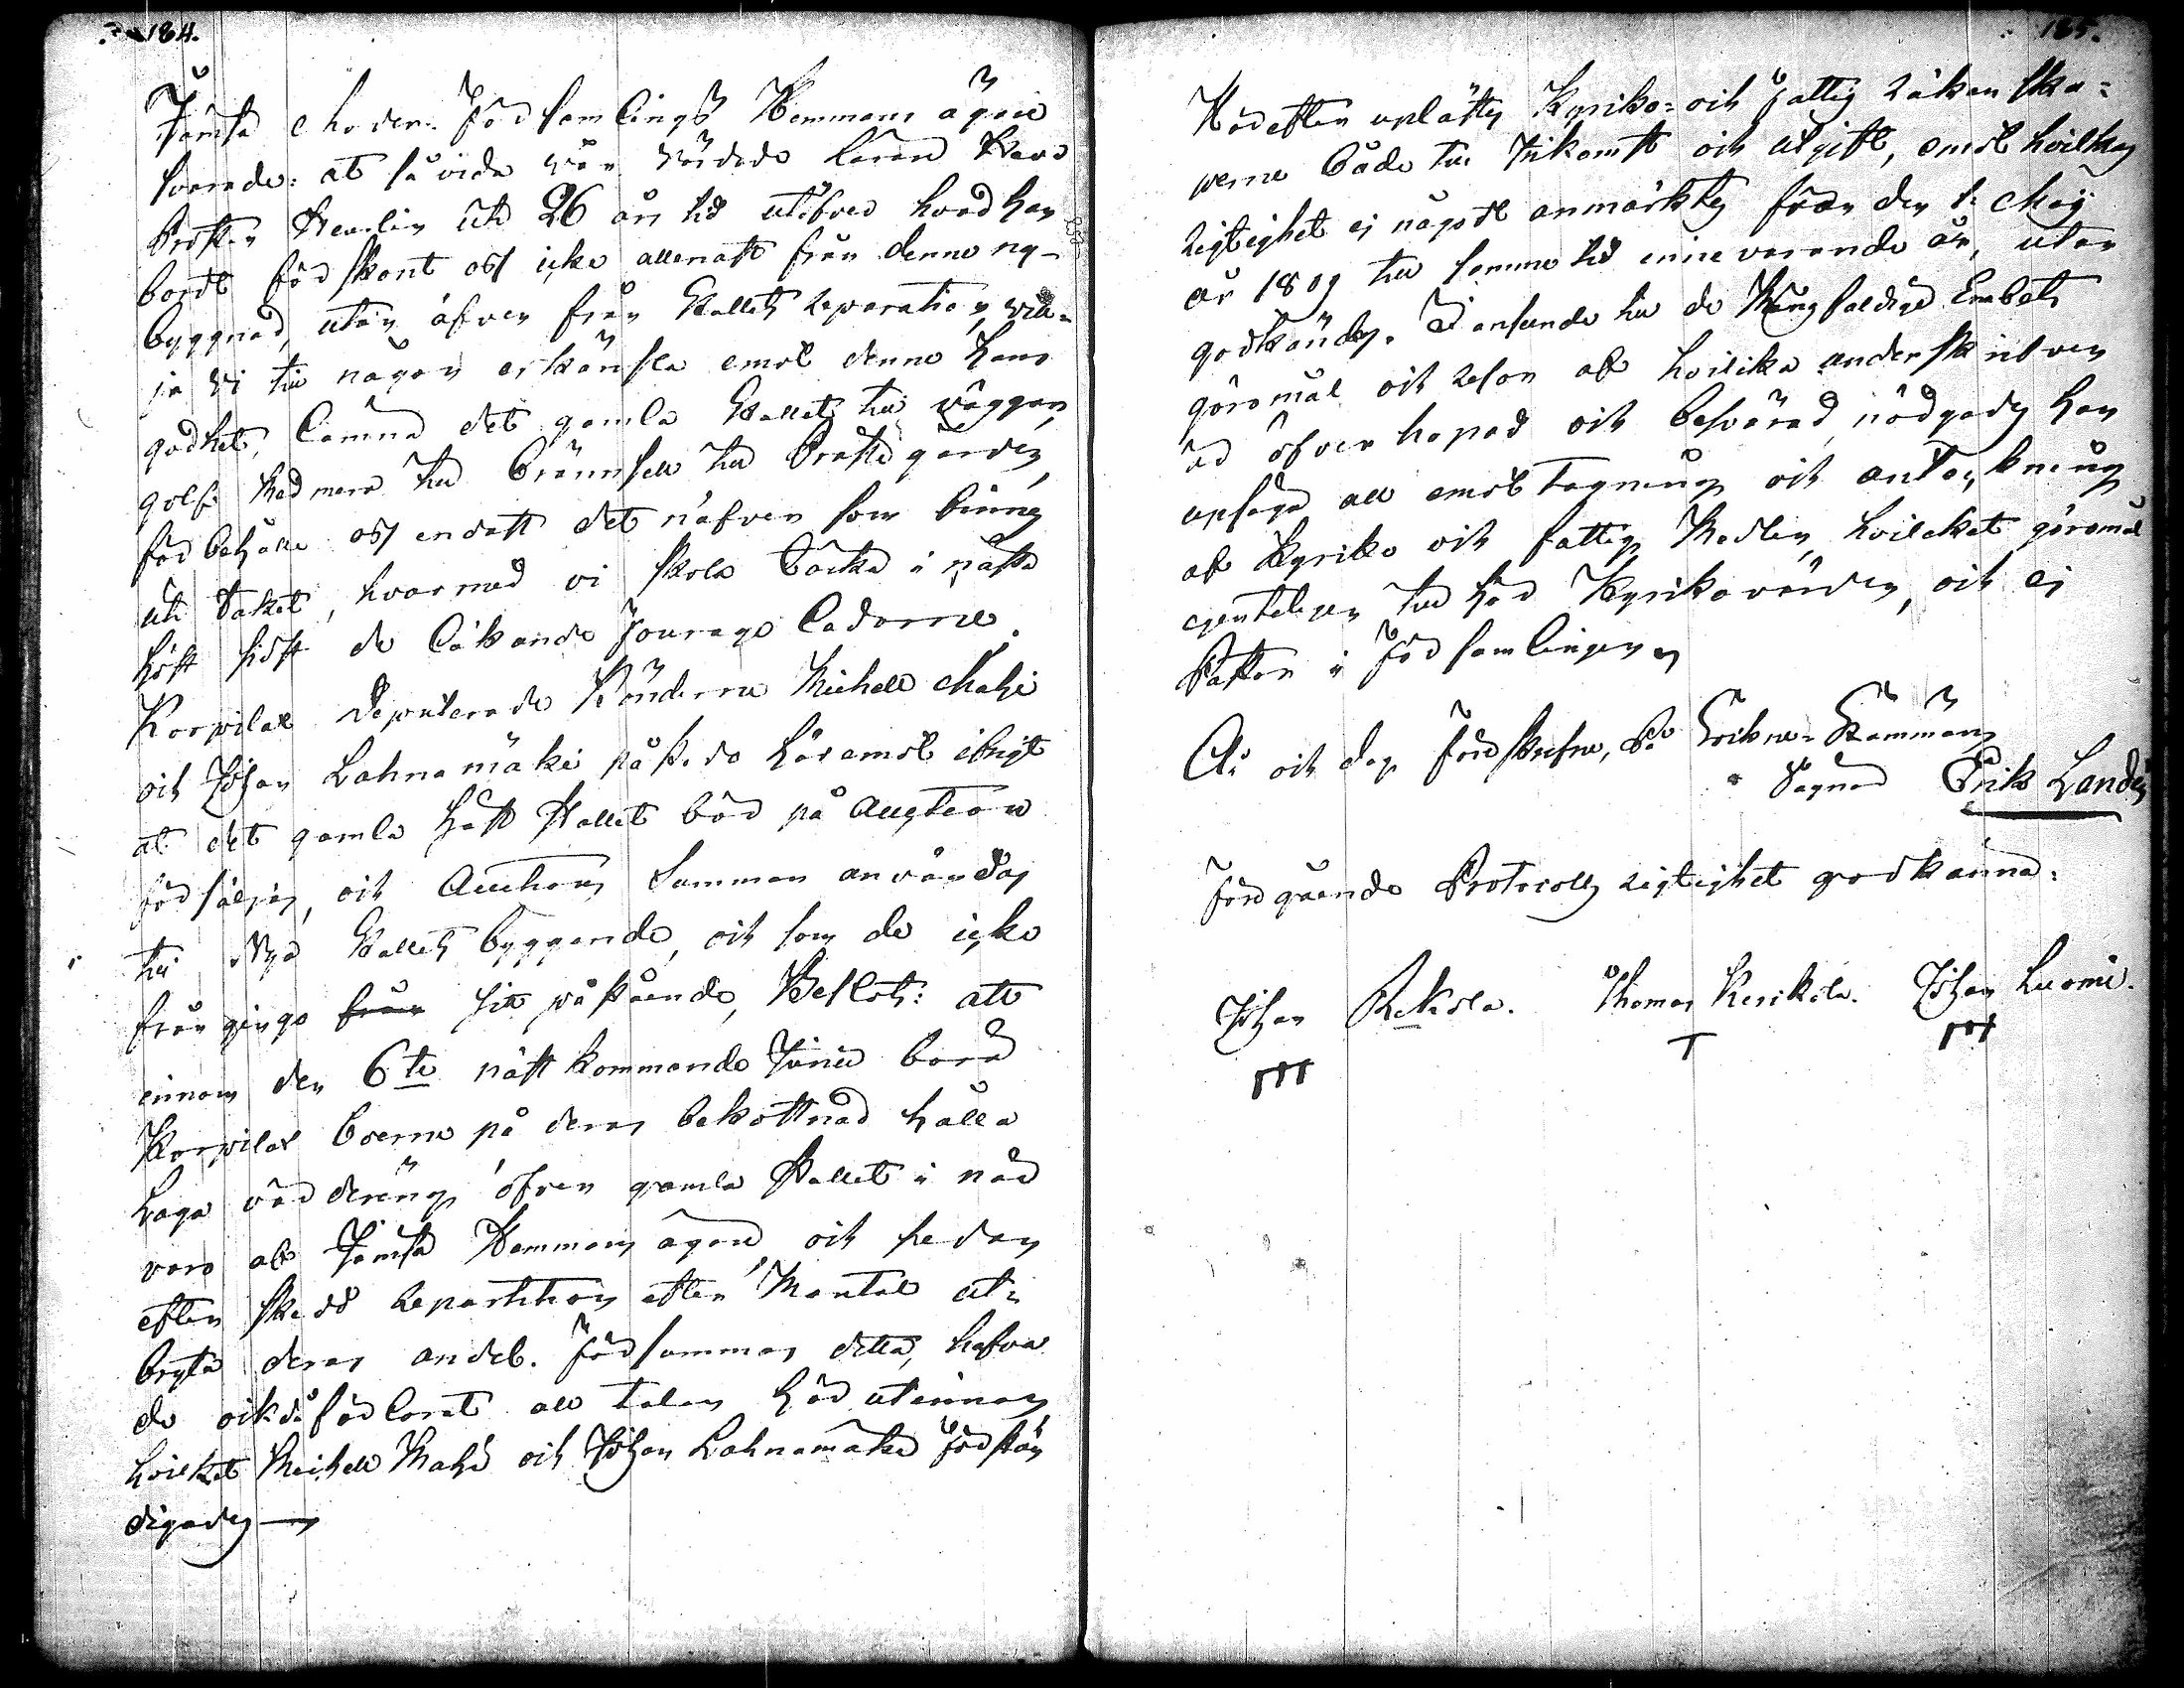 184.
Jämsä Moder Församlings Hemmans ägare
svarade: at så vida vår vördade Lärare Herr
Prosten Hemlin uti 26 års tid utöfver hvad han
bordt förskont oss icke allenast från denne ny-
byggnad, utan äfven från Stallets reparation, vilja
vi til någon erkänsla emot denne hans
godhet, lämna det gamla Stallets til väggar,
golf med mera til brännsle til Prästegården,
förbehålle oss endast det näfver som finnes
uti taket, hvarmed vi skola täcka i nästa
höst sidst de läkande Fourage Ladorne.
Korpilax deputerade Bönderne Michell Mahi
och Johan Lahnamäki påstodo häremot ifrigt
at det gamla Häst Stallet bör på Auction
försäljas, och Auctions Summan användas
til Nya Stallets byggande, och som de icke
från gingo från sitt påstående, Beslöts: att
innom den 6te nästkommande Junii borde
Korpilax boerne på deras bekostnad hålla
Laga värdering öfver gamla Stallet i när
varo af Jämsä Hemmans ägare, och sedan
efter skedd repartition efter Mantal ut-
bryta deras andel. Försummas detta, hafva
de ock då förlorat all talan här utinnan
hvilket Michell Mahi och Johan Lahnamäki förstän
digades
185.
Härefter uplästes Kyrko- och Fattig Räkenska-
perne både til Inkomst och utgift, emot hvilkas
rigtighet ej något anmärktes från den 1. Maij
år 1809 til samma tid innevarande år, utan
godkändes. I anseende til de Mångfaldige Embets
göromål och resor af hvilika underskrifven
är öfverhopad och besvärad, nödgades han
upsäga all emottagning och anteckning
af Kyrko och fattig Medlen, hvilcket göromål
egenteligen til hör Kyrkovärden, och ej
Pastor i Församlingen
År och dag förrskrefne, På Sockne-Stämmans
Vägnar Erik Landén
Föregående Protocolls rigtighet godkänna:
Johan Rekola. Thomas Kerikola. Johan Luomi.